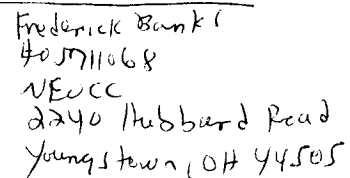 Frederick Banks
#05711068
NEOCC
2240 Hubbard Road
Youngstown, OH 44505